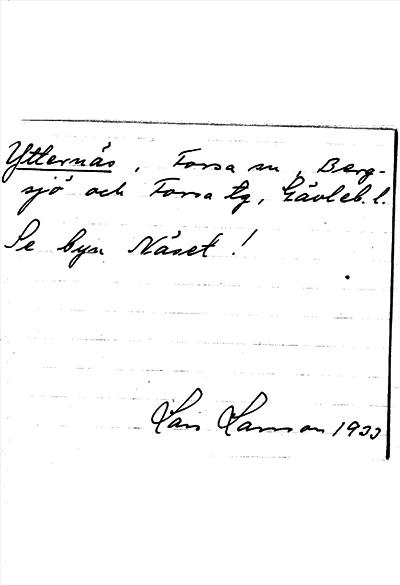 Ytternäs, Forsa sn, Berg-
sjö och Forsa tg, Gävleb. l.
Se byn Näset!
Lars Larsson 1933